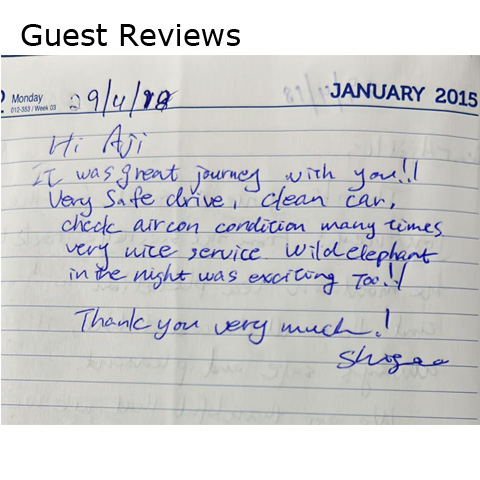 Guest Reviews
Monday
012-353 / Week 03
29/4/18
JANUARY 2015
Hi Aji
It was great journey with you!!!
Very Safe drive, clean car,
check aircon condition many times
very nice service Wild elephant
in the night was exciting Too!!
Thank you very much!